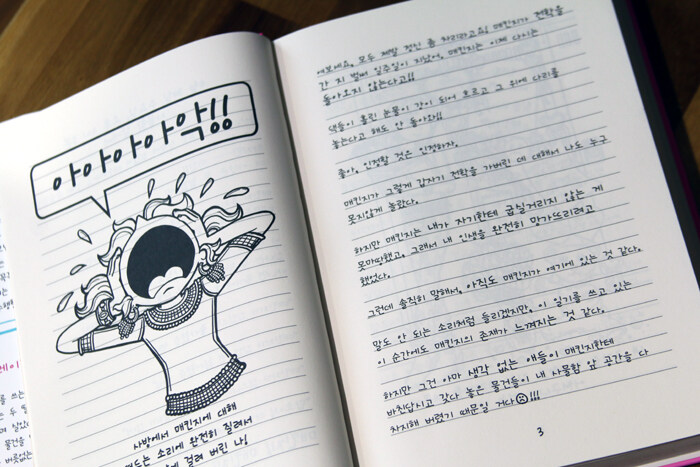 아아아아악!!
사방에서 매킨지에 대해
떠드는 소리에 완전히 질려서
걸려 버린 나!
여보세요, 모두 제발 정신 좀 차리라고요! 매킨지가 전학을
간 지 벌써 일주일이 지났어. 매킨지는 이제 다시는
돌아오지 않는다고!!
댁들이 흘린 눈물이 강이 되어 흐르고 그 위에 다리를
놓는다고 해도 안 돌아와!!
좋아. 인정할 것은 인정하자.
매킨지가 그렇게 갑자기 전학을 가버린 데 대해서 나도 누구
못지않게 놀랐다.
하지만 매킨지는 내가 자기한테 굽실거리지 않는 게
못마땅했고, 그래서 내 인생을 완전히 망가뜨리려고
했었다.
그런데 솔직히 말해서, 아직도 매킨지가 여기에 있는 것 같다.
말도 안 되는 소리처럼 들리겠지만, 이 일기를 쓰고 있는
이 순간에도 매킨지의 존재가 느껴지는 것 같다.
하지만 그건 아마 생각 없는 애들이 매킨지한테
바친답시고 갖다 놓은 물건들이 내 사물함 앞 공간을 다
차지해 버렸기 때문일 거다☹!!!
3